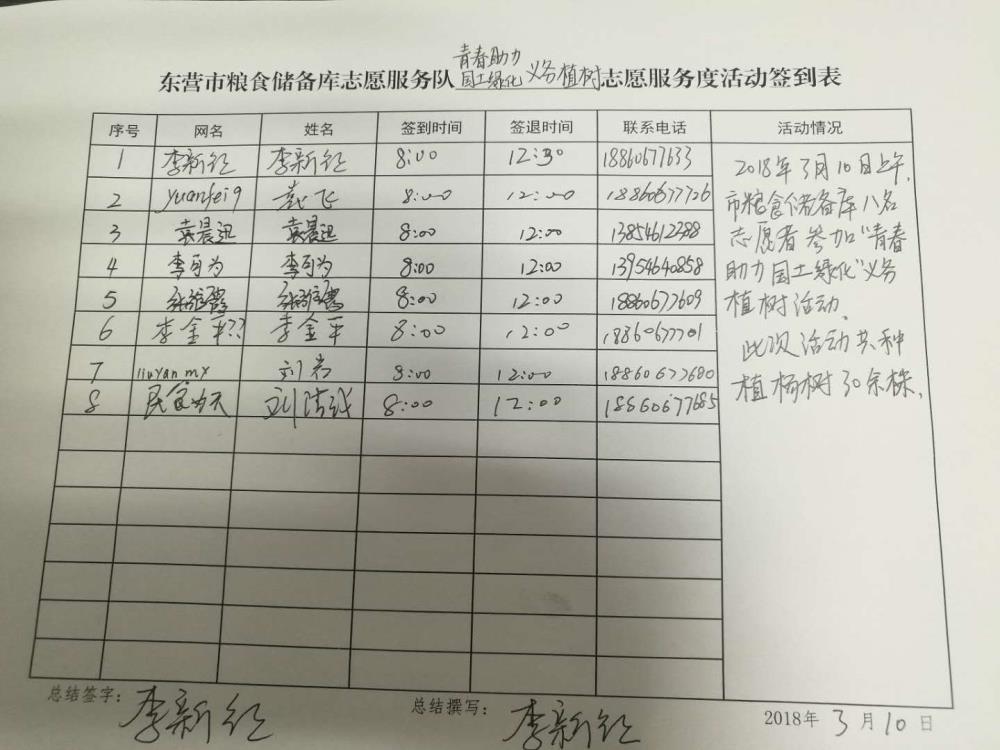 青春助力
东营市粮食储备库志愿服务队国土绿化义务植树志愿服务度活动签到表
序号 网名 姓名 签到时间 签退时间 联系电话 活动情况
1 李新红 李新红 8:00 12:30 18860677633
2 yuanfei9 袁飞 8:00 12:00 18860677726
3 袁晨迅 袁晨迅 8:00 12:00 13854612388
4 李可为 李可为 8:00 12:00 13954640858
5 8:00 12:00 18860677609
6 李金平?? 李金平 8:00 12:00 18860677701
7 liuyan mx 刘岩 8:00 12:00 18860677680
8 民食为天 8:00 12:00 18860677685
2018年3月10日上午,
市粮食储备库八名
志愿者参加"青春
助力国土绿化"义务
植树活动.
此次活动共种
植杨树30余株.
总结签字: 李新红 总结撰写: 李新红 2018年 3月10日